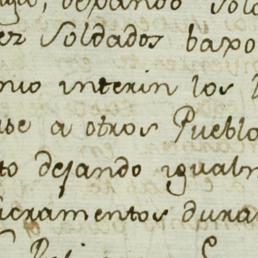 dexando sol
ez soldados baxo
nio interin los
se a otros Pueblo
to dejando igualm
acramentos dura